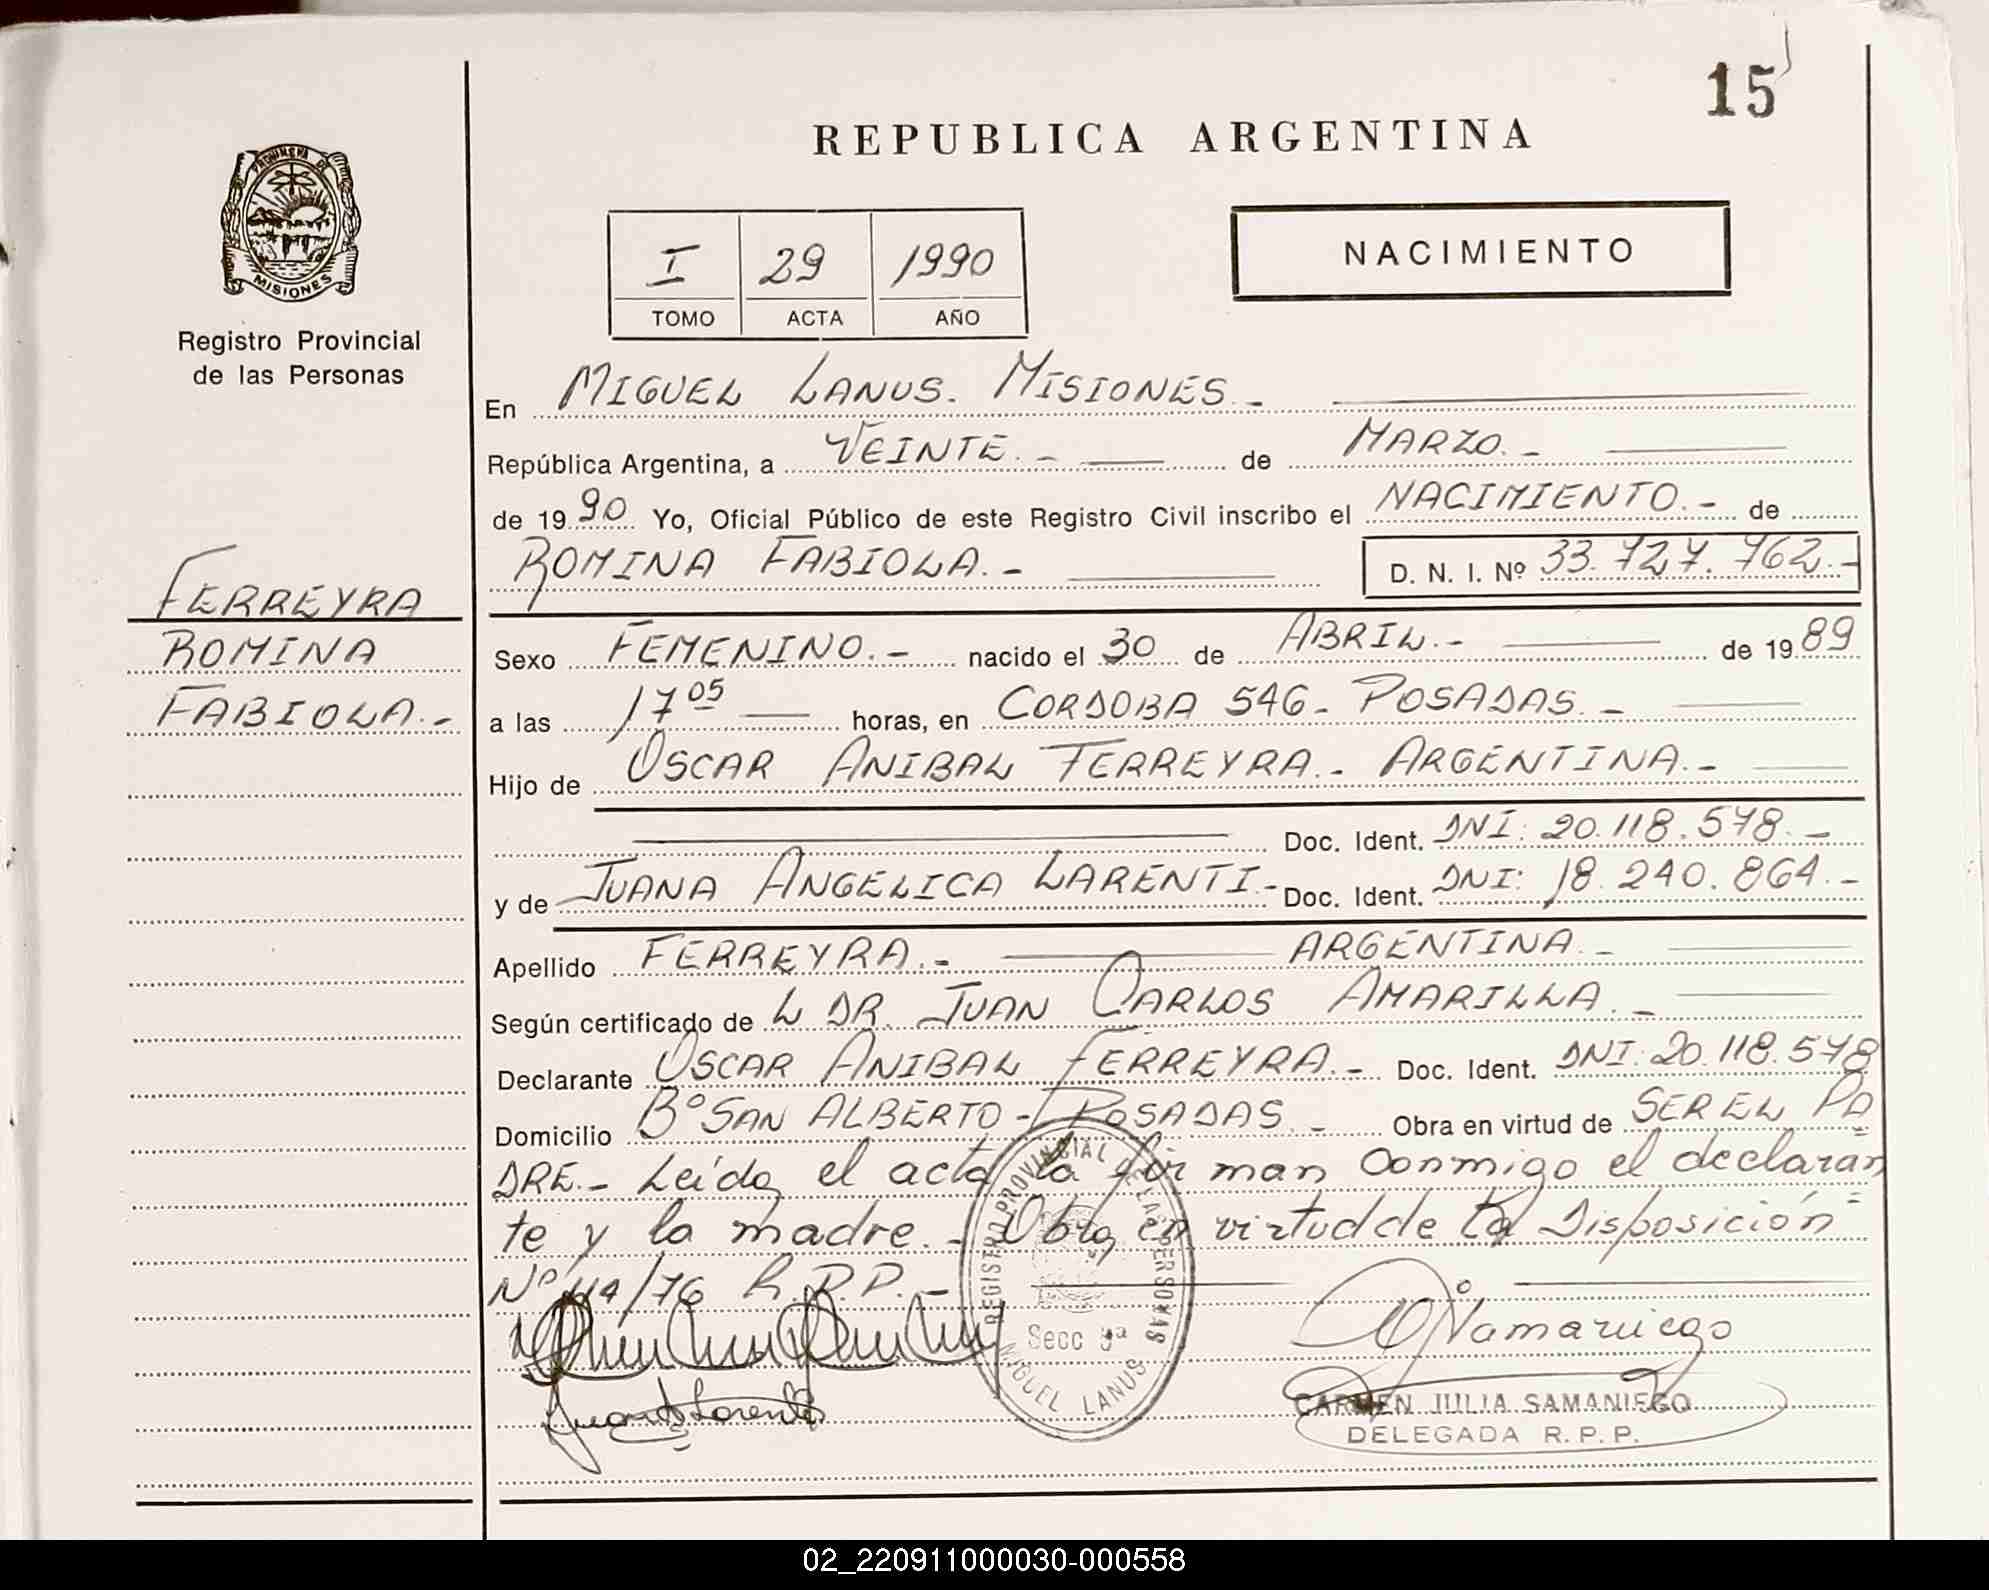 15
REPUBLICA ARGENTINA
PROVINCIA DE
MISIONES
Registro Provincial
de las Personas
I 29 1990
TOMO ACTA AÑO
NACIMIENTO
En MIGUEL LANUS. MISIONES.-
República Argentina, a VEINTE.- de MARZO.-
de 1990 Yo, Oficial Público de este Registro Civil inscribo el NACIMIENTO.- de
ROMINA FABIOLA.- D. N. I. Nº 33.727.762.-
FERREYRA
ROMINA
FABIOLA.-
Sexo FEMENINO.- nacido el 30 de ABRIL.- de 1989
a las 17 05 horas, en CORDOBA 546- POSADAS.-
Hijo de OSCAR ANIBAL FERREYRA.- ARGENTINA.-
Doc. Ident. DNI: 20.118.578.-
y de JUANA ANGELICA LARENTI.- Doc. Ident. DNI: 18.240.864.-
Apellido FERREYRA.- ARGENTINA.-
Según certificado de L DR. JUAN CARLOS AMARILLA.-
Declarante OSCAR ANIBAL FERREYRA.- Doc. Ident. DNI: 20.118.578
Domicilio Bº SAN ALBERTO - POSADAS.- Obra en virtud de SER EL PA
DRE.- Leída el acta la firman conmigo el declaran
te y la madre.- Obra en virtud de la Disposición
Nº 114/76 R.P.P.-
REGISTRO PROVINCIAL DE LAS PERSONAS
Secc 5ª
MIGUEL LANUS
CARMEN JULIA SAMANIEGO
DELEGADA R.P.P.
02_220911000030-000558